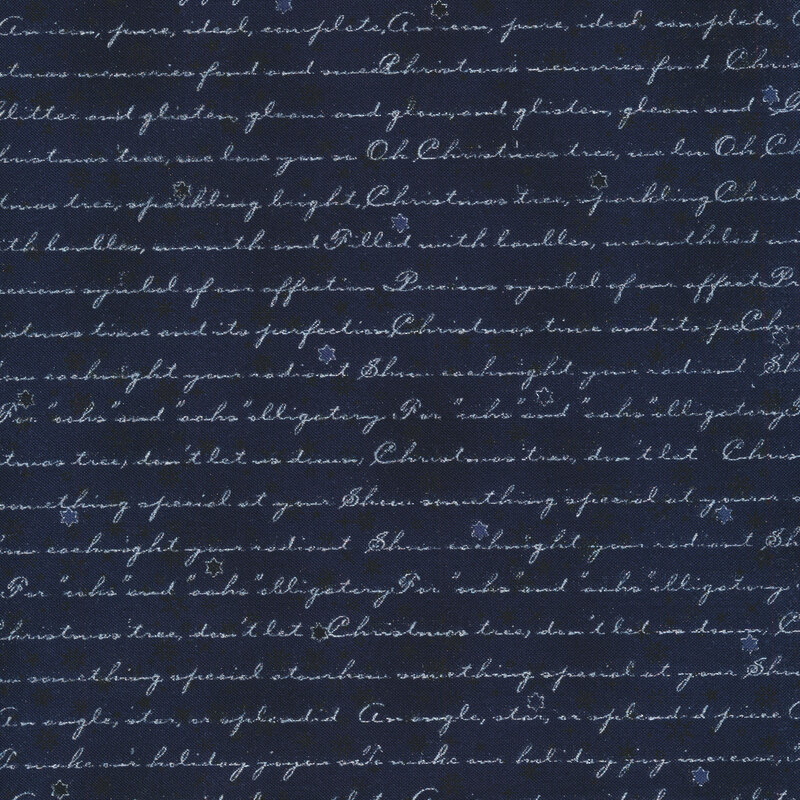 An icon, pure, ideal, complete, An icon, pure, ideal, complete,
tmas memories fond and swee Christmas memories fond Chris
Glitter and glisten, gleam and glow, and glisten, gleam and G
hristmas tree, we love you so Oh, Christmas tree, we lov Oh, Ch
tmas tree, sparkling bright, Christmas tree, sparkling Christ
ith baubles, warmth and Filled with baubles, warmth led w
recious symbol of our affection Precious symbol of our affect Pr
tmas time and its perfection Christmas time and its pe Chri
ow each night your radiant Show each night your radiant S
For "oohs" and "aahs" obligatory. For "oohs" and "aahs" obligatory
tmas tree, don't let us down, Christmas tree, don't let Chris
omething special at your Show something special at your s
ow each night your radiant Show each night your radiant Sh
For "oohs" and "aahs" obligatory For "oohs" and "aahs" obligatory
hristmas tree, don't let Christmas tree, don't let us down, C
something special at our how something special at your Show
An angle, star, or splendid An angle, star, or splendid piece A
To make our holiday joy ou To make our holiday joy increase, i
Oh, Christmas